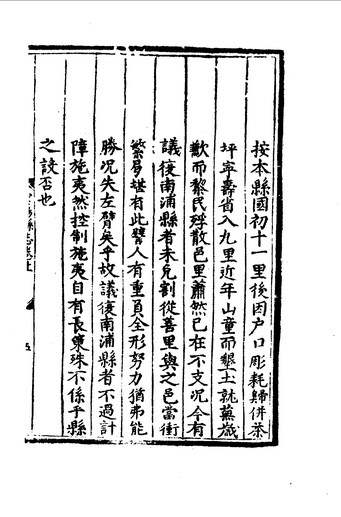 按本縣國初十一里後因戶口彫耗歸併茶
坪寧壽省入九里近年山童而墾土就蕪歲
歉而黎民殍散邑里蕭然已在不支况今有
議復南浦縣者未免割從喜里與之邑當衝
繁易堪有此譬人有重負全形努力猶弗能
勝况失左臂矣乎故議復南浦縣者不過計
障施夷然控制施夷自有長策殊不係乎縣
之設否也
五